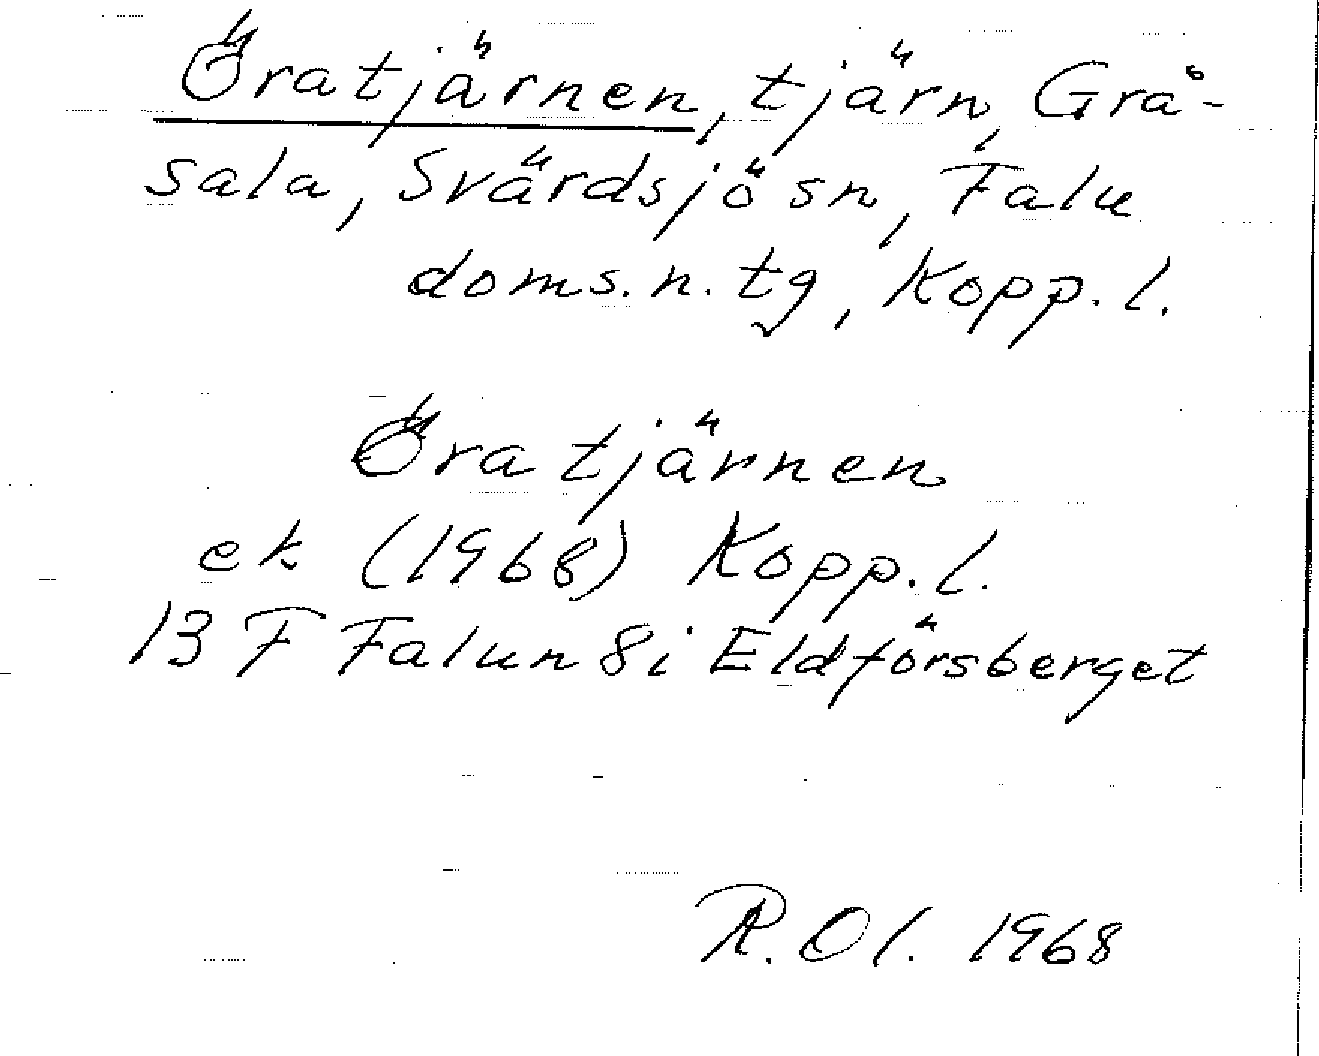 Öratjärnen, tjärn, Grå-
sala, Svärdsjö sn, Falu
doms.n. tg, Kopp. l.
Öratjärnen
ek (1968) Kopp. l.
13 F Falun 8i Eldförsberget
R. Ol. 1968